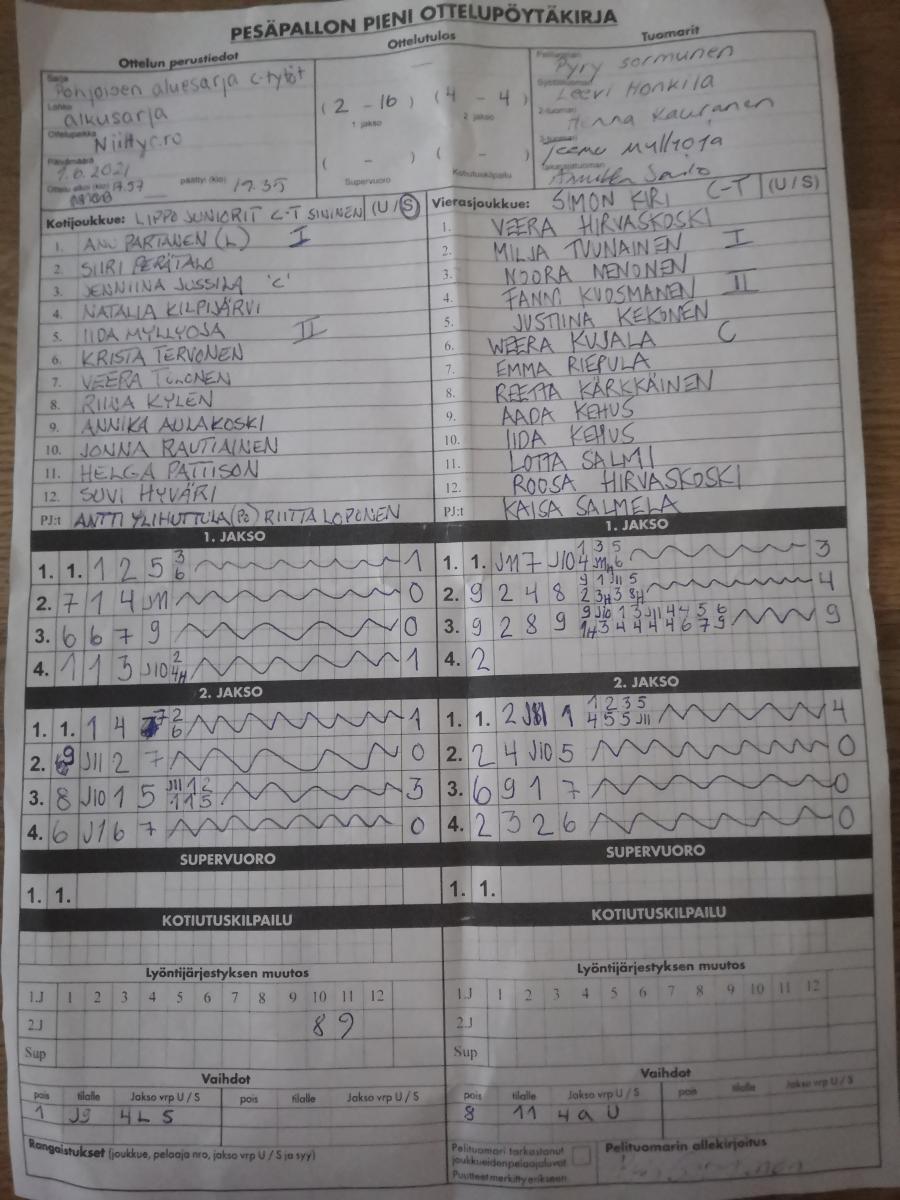 PESÄPALLON PIENI OTTELUPÖYTÄKIRJA
Ottelun perustiedot
Ottelutulos
Tuomarit
Sarja
Pohjoisen aluesarja C-tytöt
Lohko
alkusarja
Ottelupaikka
Niittyc.ro
Päivämäärä
1.6.2021
Ottelu alkoi (klo) 17.57 päättyi (klo) 19.35
(2 - 16) (4 - 4)
1 jakso 2 jakso
( - ) ( - )
Supervuoro Kotiutuskilpailu
Pyry Sormunen
Leevi Honkila
Henna Kauranen
Teemu Myllyoja
Kotijoukkue: LIPPO JUNIORIT C-T SININEN (U / S)
1. ANU PARTANEN (L) I
2. SIIRI PERÄTALO
3. JENNIINA JUSSILA 'C'
4. NATALIA KILPIJÄRVI
5. IIDA MYLLYOJA II
6. KRISTA TERVONEN
7. VEERA TOLONEN
8. RIINA KYLEN
9. ANNIKA AULAKOSKI
10. JONNA RAUTIAINEN
11. HELGA PATTISON
12. SUVI HYVÄRI
PJ:t ANTTI YLIHUTTULA (PO) RIITTA LOPONEN
Vierasjoukkue: SIMON KIRI C-T (U / S)
1. VEERA HIRVASKOSKI
2. MILJA TUUNAINEN I
3. NOORA NENONEN
4. FANNI KUOSMANEN II
5. JUSTIINA KEKONEN
6. WEERA KUJALA C
7. EMMA RIEPULA
8. REETTA KÄRKKÄINEN
9. AADA KEHUS
10. IIDA KEHUS
11. LOTTA SALMI
12. ROOSA HIRVASKOSKI
PJ:t KAISA SALMELA
1. JAKSO
1. 1. 1 2 5 3 6 1
2. 7 1 4 J11 0
3. 6 6 7 9 0
4. 1 1 3 J10 2 4H 1
1. JAKSO
1. 1. J11 7 J10 1 3 5 4 J11H 6 3
2. 9 2 4 8 9 1 J11 5 2 3H 3 8H 4
3. 9 2 8 9 9 J10 1 3 J11 4 4 5 6 1H 3 4 4 4 4 6 7 9 9
4. 2
2. JAKSO
1. 1. 1 4 7 2 6 1
2. 9 J11 2 7 0
3. 8 J10 1 5 J11 1 2 1 1 5 3
4. 6 J1 6 7 0
2. JAKSO
1. 1. 2 J11 1 1 2 3 5 4 5 5 J11 4
2. 2 4 J10 5 0
3. 6 9 1 7 0
4. 2 3 2 6 0
SUPERVUORO
1. 1.
SUPERVUORO
1. 1.
KOTIUTUSKILPAILU
KOTIUTUSKILPAILU
Lyöntijärjestyksen muutos
1.J 1 2 3 4 5 6 7 8 9 10 11 12
2.J 8 9
Sup
Lyöntijärjestyksen muutos
1.J 1 2 3 4 5 6 7 8 9 10 11 12
2.J
Sup
Vaihdot
pois tilalle Jakso vrp U / S pois tilalle Jakso vrp U / S
1 J9 4L S
Vaihdot
pois tilalle Jakso vrp U / S pois tilalle Jakso vrp U / S
8 11 4a U
Rangaistukset (joukkue, pelaaja nro, jakso vrp U / S ja syy)
Pelituomari tarkastanut
joukkueiden pelaajaluvat
Puutteet merkitty erikseen
Pelituomarin allekirjoitus